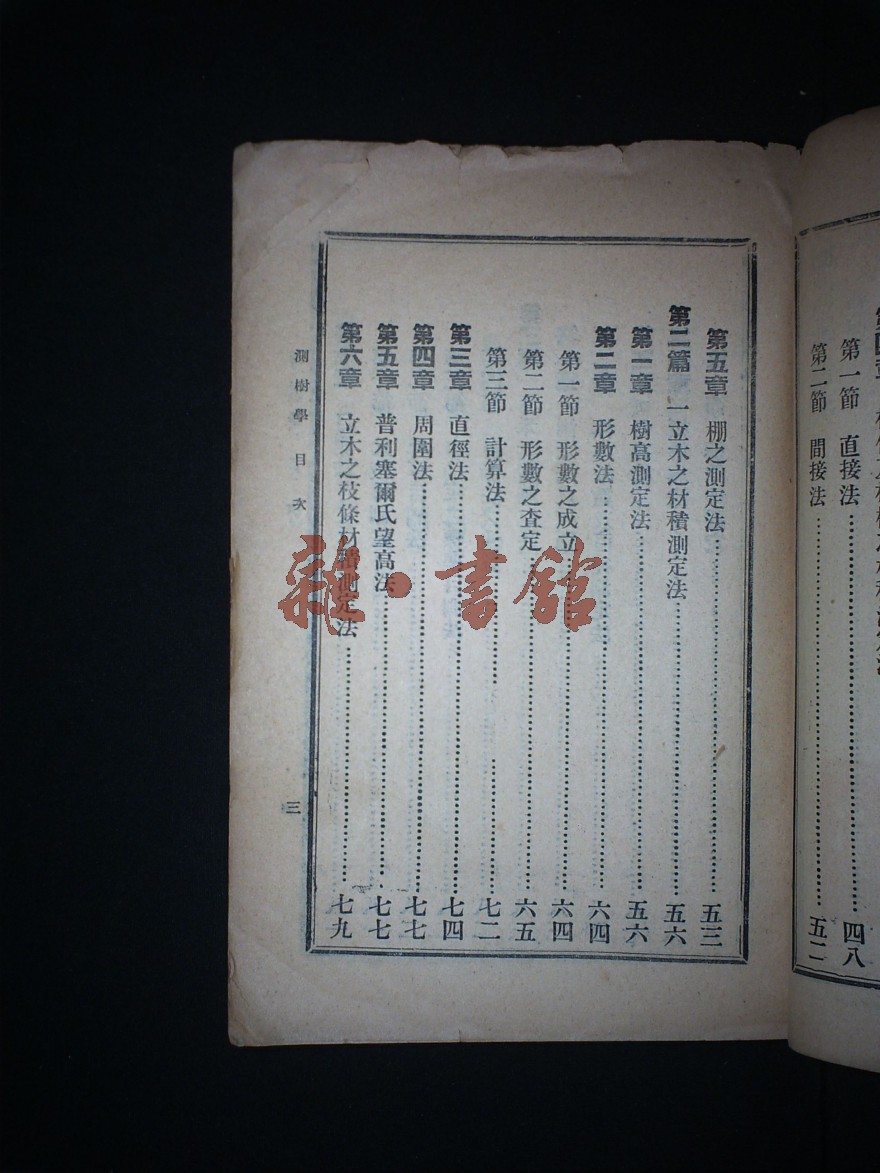 第一節　直接法…………四八
第二節　間接法…………五二
第五章　棚之測定法…………五三
第二篇　一立木之材積測定法…………五六
第一章　樹高測定法…………五六
第二章　形數法…………六四
第一節　形數之成立…………六四
第二節　形數之査定…………六五
第三節　計算法…………七二
第三章　直徑法…………七四
第四章　周圍法…………七七
第五章　普利塞爾氏望高法…………七七
第六章　立木之枝條材積測定法…………七九
測樹學　目次
三
雜·書館